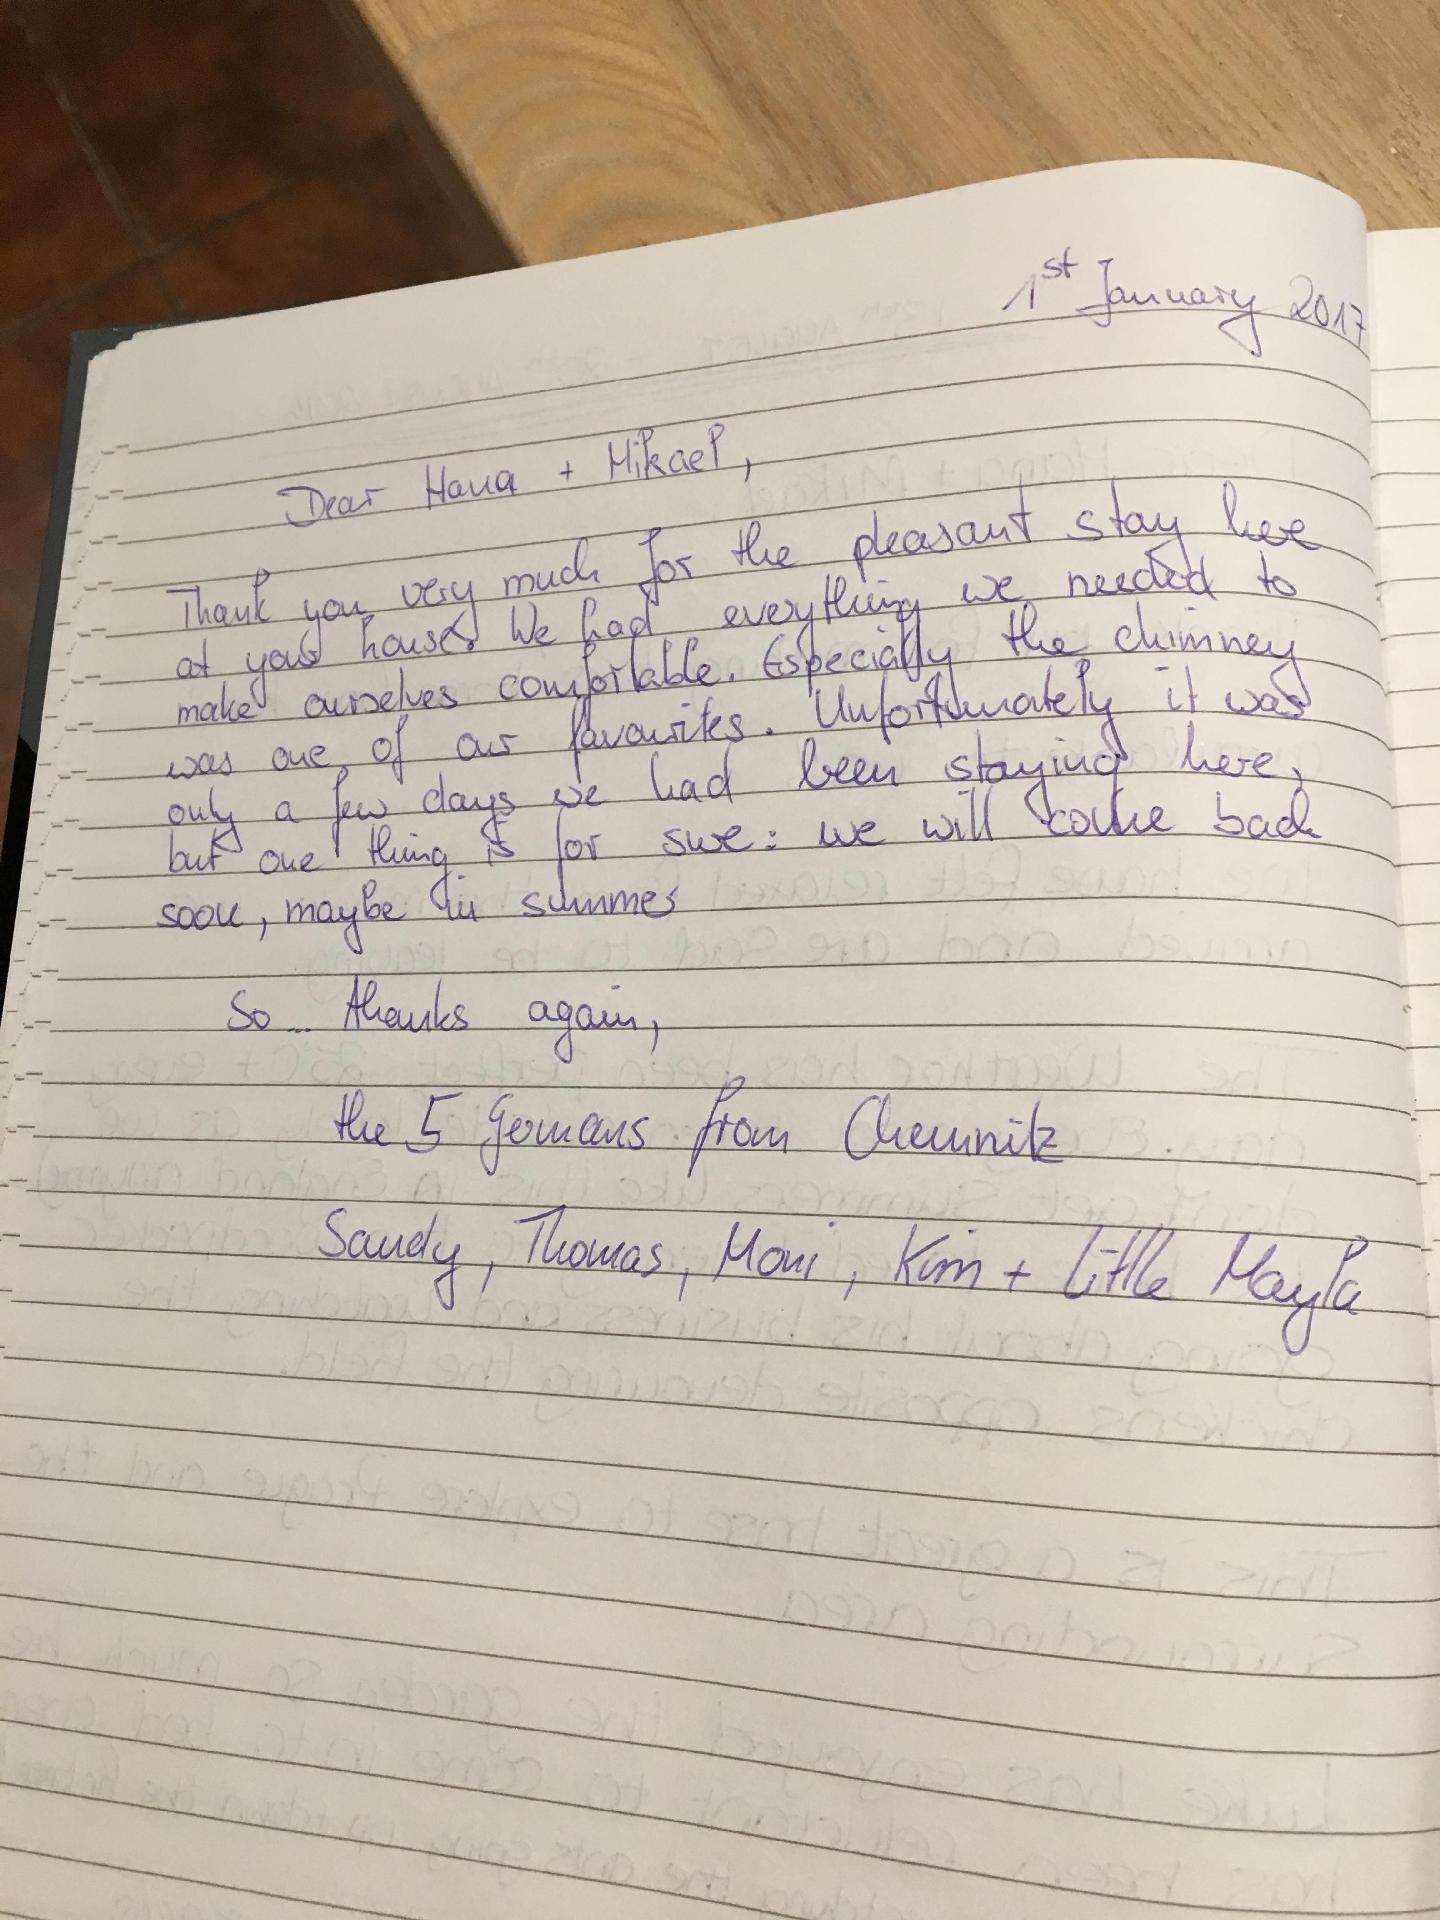 1st January 2017
Dear Hana + Mikael,
Thank you very much for the pleasant stay here
at your house. We had everything we needed to
make ourselves comfortable. Especially the chimney
was one of our favourites. Unfortunately it was
only a few days we had been staying here,
but one thing is for sure: we will come back
soon, maybe in summer
So... thanks again,
the 5 Germans from Chemnitz
Sandy, Thomas, Moni, Kim + Little Mayla